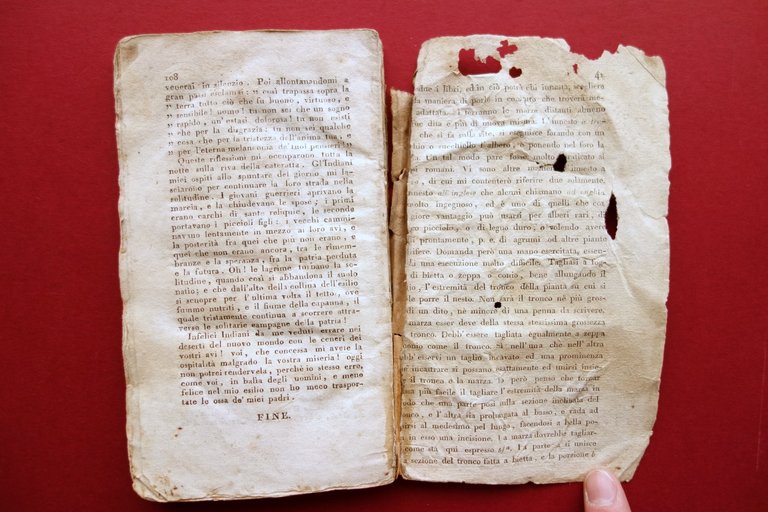 108
venerai in silenzio. Poi allontanandomi a
gran passi esclamai: » così trapassa sopra la
» terra tutto ciò che fu buono, virtuoso, e
» sensibile! uomo! tu non sei che un sogno
» rapido, un'estasi dolorosa! tu non esisti
» che per la disgrazia: tu non sei qualche
» cosa che per la tristezza dell'anima tua, e
» per l'eterna melanconia de' tuoi pensieri!»
Queste riflessioni mi occuparono tutta la
notte sulla riva della cateratta. Gl'Indiani
miei ospiti allo spuntare del giorno mi la-
sciarono per continuare la loro strada nella
solitudine. I giovani guerrieri aprivano la
marcia, e la chiudevano le spose; i primi
erano carchi di sante reliquie, le seconde
portavano i piccioli figli: i vecchi cammi-
navano lentamente in mezzo ai loro avi, e
la posterità fra quei che più non erano, e
quei che non erano ancora, tra le rimem-
branze e la speranza, fra la patria perduta
e la futura. Oh! le lagrime tornano la so-
litudine, quando così si abbandona il suolo
natio; e che dall'alto della collina dell'esilio
si scuopre per l'ultima volta il tetto, ove
fummo nutriti, e il fiume della capanna, il
quale tristamente continua a scorrere attra-
verso le solitarie campagne della patria!
Infelici Indiani da me veduti errare nei
deserti del nuovo mondo con le ceneri dei
vostri avi! voi, che concessa mi avete la
ospitalità malgrado la vostra miseria! oggi
non potrei rendervela, perchè io stesso erro,
come voi, in balìa degli uomini, e meno
felice nel mio esilio non ho meco traspor-
tate le ossa de' miei padri.
FINE.
41
due i libri, ed in ciò potrà chi innesta, scegliere
la maniera di porle in contatto che troverà me-
adattata. I terranno le marze distanti almeno
due dita e più di nuova misura. L'innesto a
che si fa sulla vite, si eseguisce forando con un
o succhiello l'albero, e ponendo nel foro la
in tal modo pare fosse molto praticato ai
romani. Vi sono altre maniere
, di cui mi contenterò riferire due solamente.
innesto all'inglese che alcuni chiamano ad
molto ingegnoso, ed è uno di quelli che con
vantaggio può usarsi per alberi rari, di
picciolo, o di legno duro, o volendo avere
prontamente, p. e. di agrumi od altre piante
Domanda però una mano esercitata, essen-
una esecuzione molto difficile. Taglisi a fog-
di bietta o zeppa o conio, bene allungando il
l'estremità del tronco della pianta su cui si
le porre il nesto. Non sarà il tronco nè più gros-
di un dito, nè minore di una penna da scrivere,
marza esser deve della stessa stessissima grossezza
tronco. Debbi essere tagliata egualmente a zeppa
come il tronco. Sì nell'una che nell'altra
ebbi esservi un taglio incavato ed una prominenza
incastrare si possano esattamente ed unirsi insie-
il tronco e la marza. Si però penso che tornar
più facile il tagliare l'estremità della marza in
modo che una parte posi sulla sezione inclinata del
tronco, e l'altra sia prolungata al basso, e cada ad
al medesimo pel lungo, facendosi a bella po-
in esso una incisione. La marza dovrebbe tagliar-
come stà qui espresso La parte a si unisce
a sezione del tronco fatta a bietta, e la porzione b